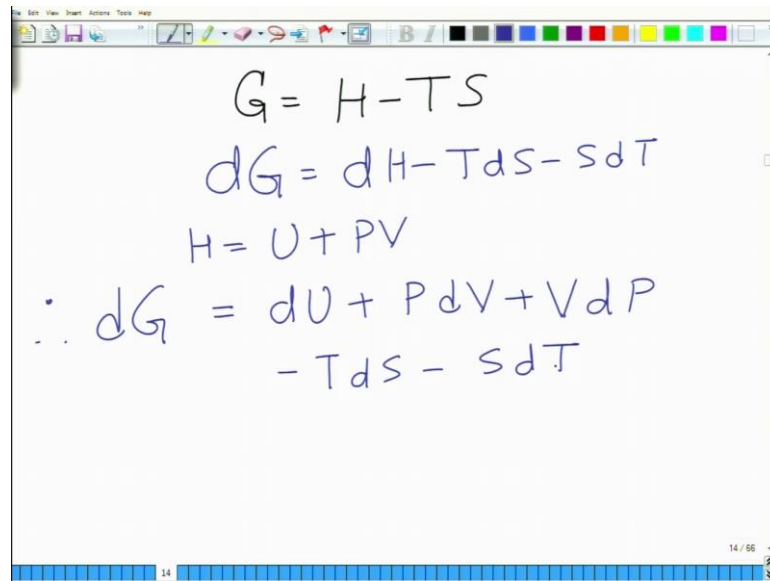 File Edit View Insert Actions Tools Help
B I
G = H - TS
dG = dH - TdS - SdT
H = U + PV
∴ dG = dU + PdV + VdP
- TdS - SdT
14 / 66
14